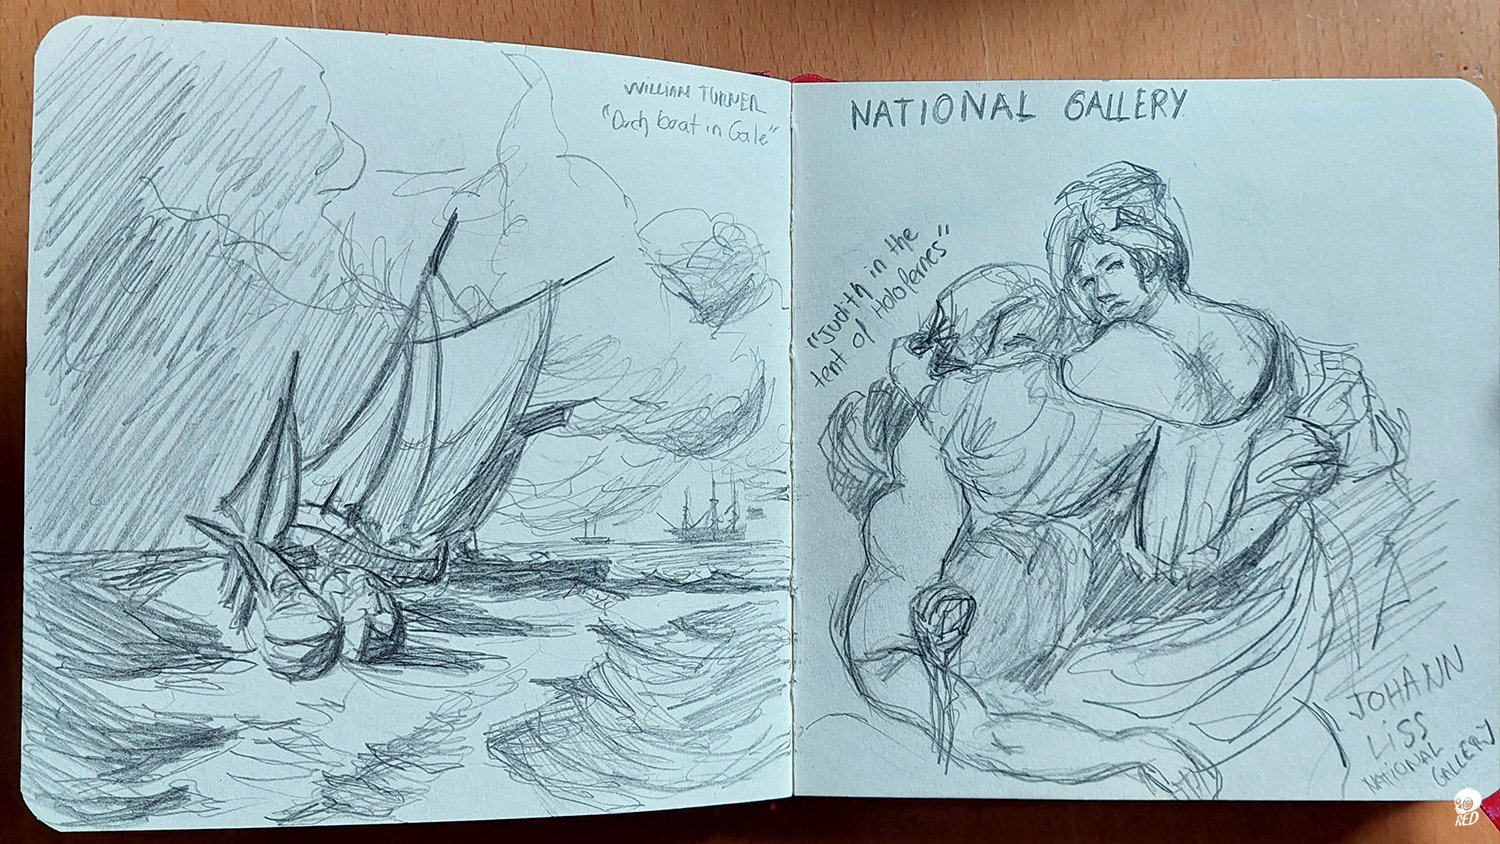 WILLIAM TURNER
"Duch boat in Gale"
NATIONAL GALLERY
"Judith in the
tent of Holofernes"
JOHANN
LISS
NATIONAL
GALLERY
RED